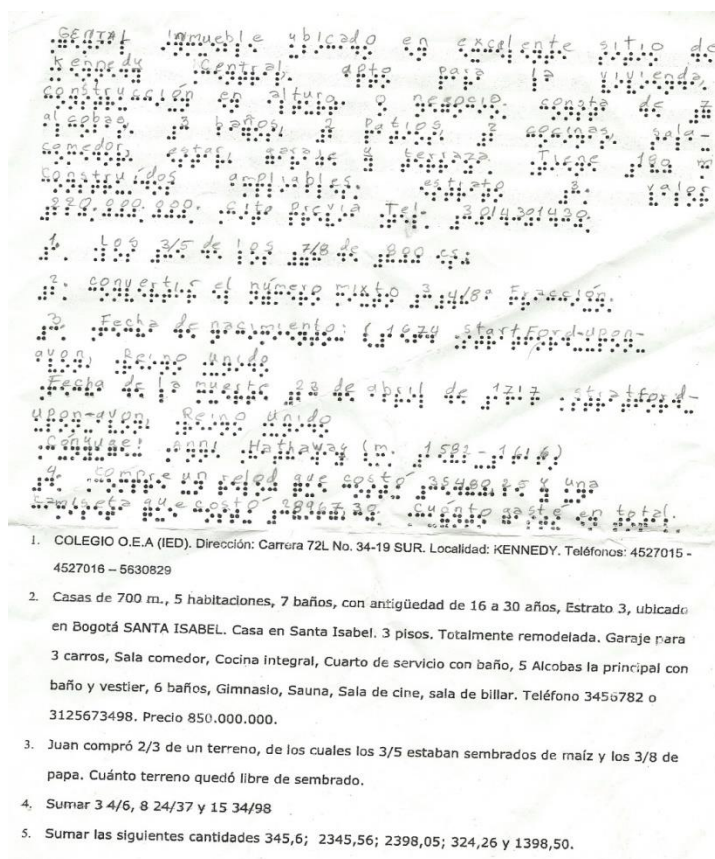 GENTRAL inmueble ubicado en excelente sitio de
Kennedy Central, apto para la vivienda,
construcción en altura o negocio. consta de 7
alcobas, 3 baños, 2 patios, 2 cocinas, sala-
comedor, estar, garaje y terraza. Tiene 180 m
construídos ampliables. estrato 3. valor
220.000.000. Cita Previa Tel. 3014301430.
1. Los 3/5 de los 7/8 de 800 es:
2. convertir el número mixto 3 4/8a Fracción.
3. Fecha de nacimiento: ( 1674 startFord-upon-
avon, Reino unido
Fecha de la muerte 23 de abril de 1717 stratford-
upon-avon, Reino unido
Cónyuge: ann, Hathaway (m. 1582-1616)
4. compre un reloj que costó 35480,25 y una
camiseta que costó 28967,30. cuánto gasté en total.
1. COLEGIO O.E.A (IED). Dirección: Carrera 72L No. 34-19 SUR. Localidad: KENNEDY. Teléfonos: 4527015 -
4527016 – 5630829
2. Casas de 700 m., 5 habitaciones, 7 baños, con antigüedad de 16 a 30 años, Estrato 3, ubicado
en Bogotá SANTA ISABEL. Casa en Santa Isabel. 3 pisos. Totalmente remodelada. Garaje para
3 carros, Sala comedor, Cocina integral, Cuarto de servicio con baño, 5 Alcobas la principal con
baño y vestier, 6 baños, Gimnasio, Sauna, Sala de cine, sala de billar. Teléfono 3456782 o
3125673498. Precio 850.000.000.
3. Juan compró 2/3 de un terreno, de los cuales los 3/5 estaban sembrados de maíz y los 3/8 de
papa. Cuánto terreno quedó libre de sembrado.
4. Sumar 3 4/6, 8 24/37 y 15 34/98
5. Sumar las siguientes cantidades 345,6; 2345,56; 2398,05; 324,26 y 1398,50.